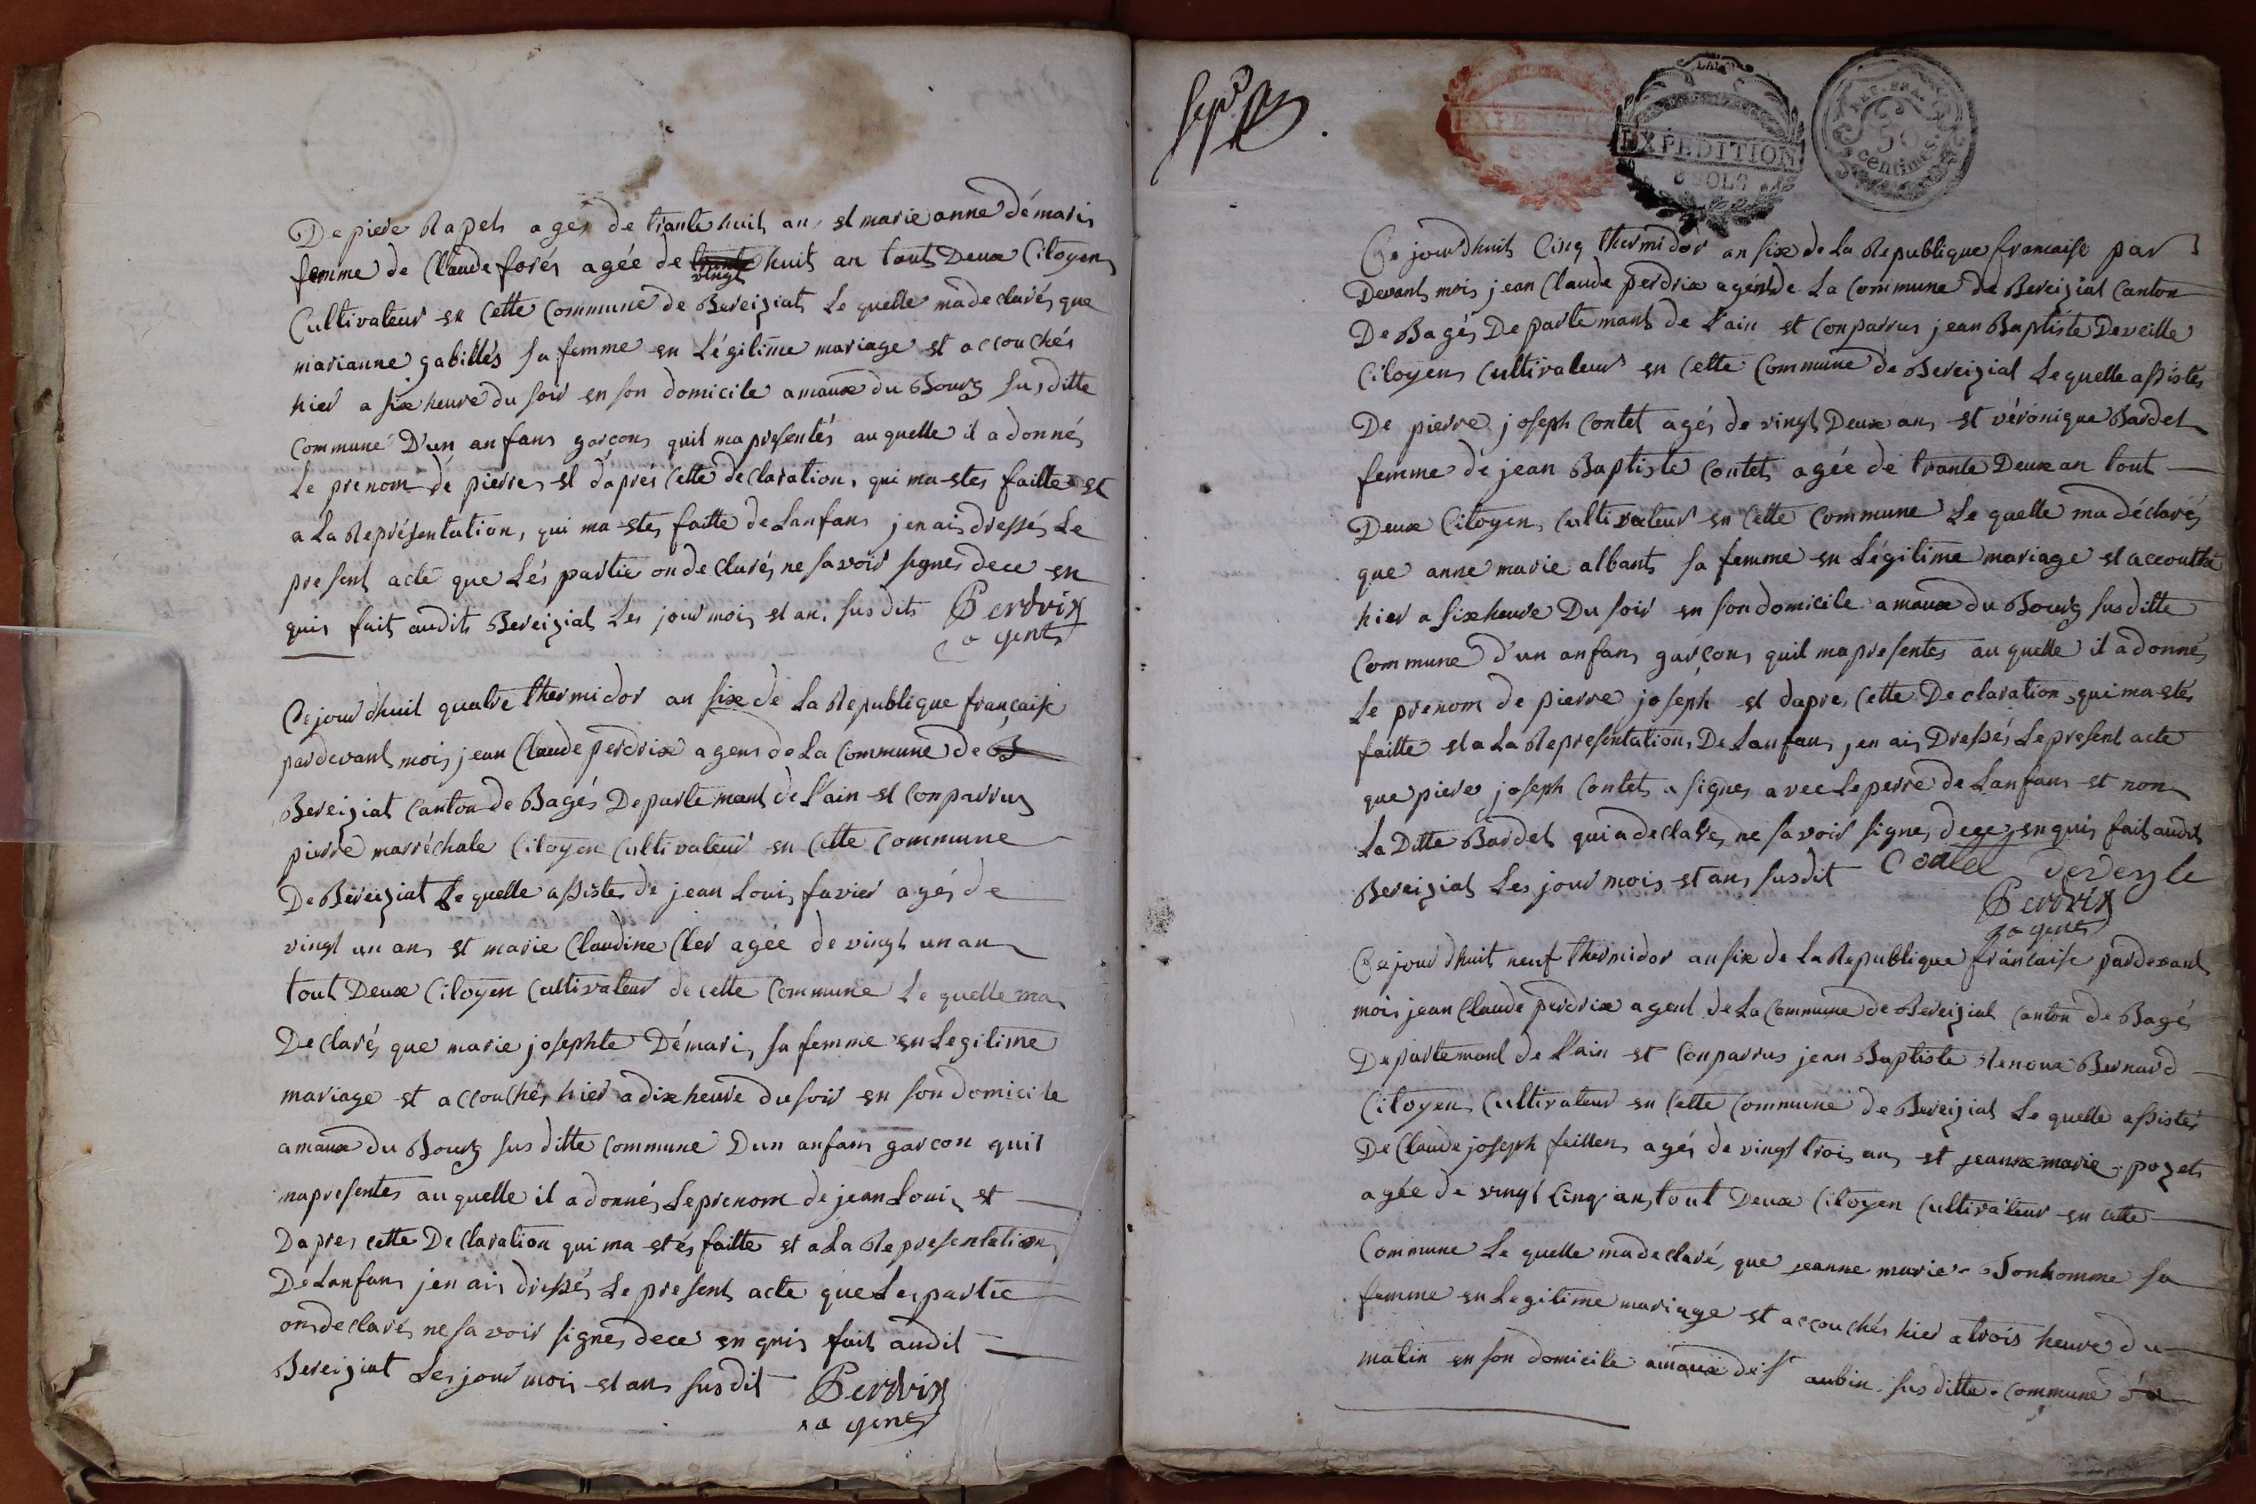 De piere Rapets agés de trante huit an, et marie anne démaris
femme de Claude forés agée de trante huit an tout Deux Citoyens
vingt
Cultivateur en Cette Commune de Bereiziat Le quelle ma declarés que
marianne gabillés sa femme en Légitime mariage et accouchés
hier a six heure du soir en son domicile amaux du Bourg susditte
Commune D'un anfans garcons quil ma presentés au quelle il a donnés
Le prenom de pierre, et d'aprés Cette declaration, qui ma-etes faitte et
a La Représentation, qui ma-etes faitte de Lanfans jenais dressés Le
present acte que Lés partie on declarés ne savoir signes de ce en
quis fait audits Bereiziat Les jour mois et an, susdits Perdrix
agent
Cejourdhuit quatre thermidor an six de La Republique française
pardevant mois jean Claude perdrix agens de La Commune de B
Bereiziat Canton de Bagés Departemant de L'ain et Conparrus
pierre marréchale Citoyen Cultivateur en Cette Commune
De Bereiziat Le quelle assistes de jean Louis favier agés de
vingt un ans et marie Claudine Cler agée de vingt un an
tout Deux Citoyen Cultivateur de cette Commune Le quelle ma
Declarés que marie josephte Démaris sa femme en Legitime
mariage et accouchés hier a dix heure du soir en son domicile
amaux du Bourg susditte Commune Dun anfans garcon quil
mapresentes au quelle il a donnés Le prenom de jean Louis et
Dapres cette Declaration qui ma etés faitte et a La Representation
De Lanfans jen ais dressés Le present acte que Les partie
ons declarés ne savoir signes de ce en quis fait audit
Bereiziat Les jour mois et ans susdit Perdrix
agent
Ce jourdhuit Cinq thermidor an six de La Republique francaise par
Devant mois jean Claude perdrix agent de La Commune de Bereiziat Canton
De Bagés Departemant de L'ain et Conparrus jean Baptiste Deveille
Citoyens Cultivateur en Cette Commune de Bereiziat Le quelle assistés
De pierre joseph Contet agés de vingt Deux ans et véronique Bardet
femme de jean Baptiste Contets agée de trante Deux an tout
Deux Citoyens Cultivateur en Cette Commune Le quelle ma déclarés
que anne marie albants sa femme en Légitime mariage et accouchés
hier a six heure Du soir en son domicile amaux du Bourg susditte
Commune d'un anfans garcons quil mapresentes au quelle il a donnés
Le prenom de pierre joseph et dapres Cette Declaration qui ma-etés
faitte et a La Representation De Lanfans jen ais Dressés Le present acte
que piere joseph Contets a signes avec Le perre de Lanfans et non
La Ditte Bardet qui a declarés ne savoir signes de ce en quis fait audit
Bereiziat Les jour mois et ans susdit Contet deveyle
Perdrix
agent
Ce jourdhuit neuf thermidor an six de La Republique francaise pardevant
mois jean Claude perdrix agent de La Commune de Bereiziat Canton de Bagés
Departemant de L'ain et Conparrus jean Baptiste Renoux Bernard
Citoyens Cultivateur en Cette Commune de Bereiziat Le quelle assistés
De Claude joseph feillens agés de vingt trois ans et jeanne marie pozets
agée de vingt Cinq ans tout Deux Citoyen Cultivateur en Cette
Commune Le quelle ma declarés que jeanne marie Bonhomme sa
femme en Legitime mariage et accouchés hier a trois heure du
matin en son domicile amaux de St aubin susditte Commune
EXPÉDITION
8 SOLS
50
centimes